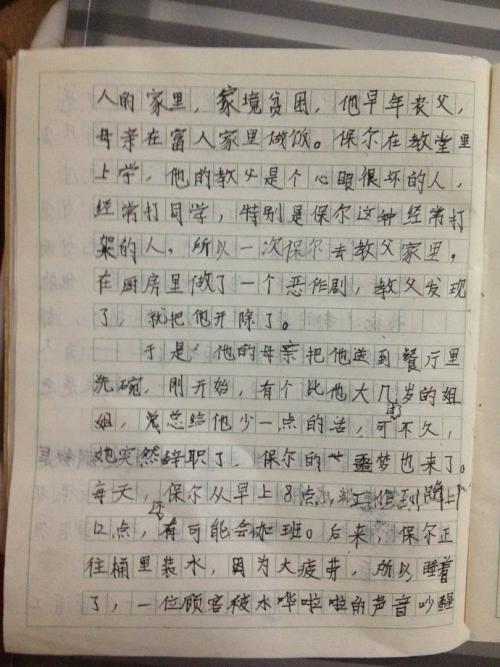 人的家里，家境贫困，他早年丧父，
母亲在富人家里做饭。保尔在教堂里
上学，他的教父是个心眼很坏的人，
经常打同学，特别是保尔这种经常打
架的人，所以一次保尔去教父家里，
在厨房里做了一个恶作剧，教父发现
了，就把他开除了。
于是，他的母亲把他送到餐厅里
洗碗，刚开始，有个比他大几岁的姐
姐，总给他少一点的活，可不久，
她突然辞职了，保尔的噩梦也来了。
每天，保尔从早上8点，工作到晚上
12点，还有可能会加班。后来，保尔正
往桶里装水，因为太疲劳，所以睡着
了，一位顾客被水哗啦啦的声音吵醒